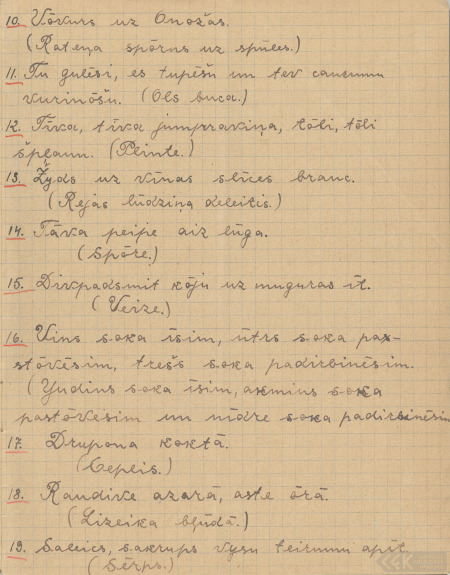 10. Vōkurs uz Onožas.
(Rateņa spōrns uz spūles.)
11. Tu gulēsi, es tupēšu un tev caurumu
kurinōšu. (Ols buca.)
12. Tīva, tīva jumpraviņa, tōli, tōli
špļaun. (Plinte.)
13. Žyds uz vīnas slīces brauc.
(Rejas lūdziņa deleitis.)
14. Tāva peipe aiz lūga.
(Spōre.)
15. Divpadsmit kōju uz muguras īt.
(Veize.)
16. Vīns soka īsim, ūtrs soka pas-
stōvēsim, trešs soka padirbinēsim.
(Yudiņs soka īsim, akmiņs soka
pastōvēsim un nīdre soka padirbinēsim
17. Drupona koktā.
(Cepleis.)
18. Raudive azarā, aste ōrā.
(Lizeika bļūdā.)
19. Saleics, sakrups vysu teirumu apīt.
(Sērps.)